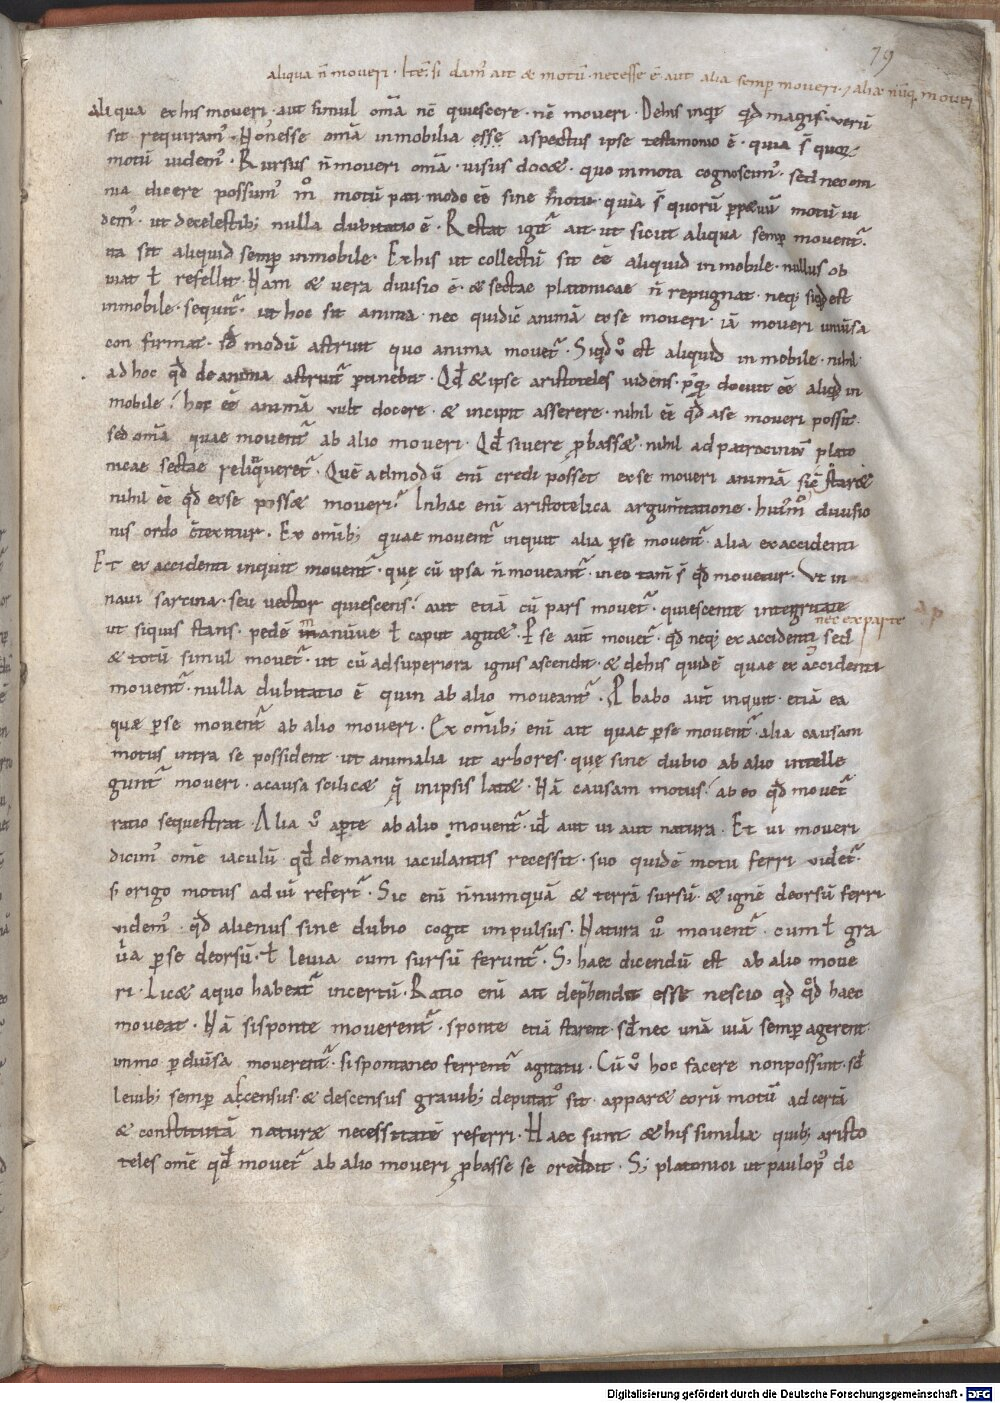 79
aliqua n̄ moveri · Itē si dam᷒ ait & motū · necesse ē aut alia semp moveri · aliæ nūq moveri
aliqua ex his moveri · aut simul omīa nēc quiescere · nēc moveri · De his inqt qđ magis verū
sit requiram᷒ · Non esse omīa inmobilia esse aspectus ipse testimonio ē · quia s̄ quorꝫ
motū videm᷒ · Rursus n̄ moveri omīa · visus docæ · quo inmota cognoscim᷒ · sed nec om
nia dicere possum᷒ motū pati modo eē sine motu · quia s̄ quorū ꝑpætuū motū vi
dem᷒ · ut de celestib; nulla dubitatio ē · Restat igit᷑ ait · ut sicut aliqua semp movent᷑
ita sit aliquid semp inmobile · Ex his ut collectū sit eē aliquid inmobile · nullus ob
viat ł refellit · Nam & vera divisio ē · & sectae platonicae n̄ repugnat · neq; siqđ est
inmobile · sequit᷑ · ut hoc sit anima · nec quidīc animā ex se moveri · iā moveri univsa
con firmat · sđ modū astruit quo anima movet᷑ · Siqđ v̊ est aliquid inmobile · nihil
ad hoc qđ de anima astruit᷑ ꝑtinebit · Qđ & ipse aristoteles videns · docuit eē aliqđ in
mobile · hoc eē animā vult docere · & incipit asserere · nihil eē qđ a se moveri possit ·
sed omīa quae movent᷑ ab alio moveri · Qđ si vere ꝓbassæ · nihil ad patrociniū plato
nicae sectae relinqueret᷑ · Quē admodū enī credi posset ex se moveri animā si ē staræ
nihil eē qđ ex se possæ moveri · In hac enī aristotelica argumtatione · divisio
nis ordo c̄texitur · Ex omīb; quae movent᷑ inquit alia ꝑse movent᷑ · alia ex accidenti
Et ex accidenti inquit movent᷑ · quę cū ipsa n̄ moveant᷑ · in eo tam̄ s̄ qđ movetur · Vt in
navi sarcina · seu vector quiescens · aut etiā cū pars movet᷑ · quiescente integritate
nec ex parte
ut siquis stans · pedē manūve ł caput agitæ · P se aut̄ movet᷑ · qđ neq; ex accidenti sed
& totū simul movet᷑ · ut cū ad superiora ignis ascendit · & de his quidē quae ex accidenti
movent᷑ · nulla dubitatio ē quin ab alio moveant᷑ · P babo aut̄ inquit · etiā ea
quæ ꝑse movent᷑ ab alio moveri · Ex omīb; enī ait quae ꝑse movent᷑ · alia causam
motus intra se possident · ut animalia ut arbores · quę sine dubio ab alio intelle
gunt᷑ moveri · a causa scilicæ q̄ in ipsis latæ · Nā causam motus · ab eo qđ movet᷑
ratio sequestrat · Alia v̊ aꝑte ab alio movent᷑ · id aut vi aut natura · Et vi moveri
dicim᷒ omē iaculū qđ de manu iaculantis recessit · suo quidē motu ferri videt᷑ ·
s̄ origo motus ad vī refert᷑ · Sic enī n̄numquā & terrā sursū · & ignē deorsū ferri
videm᷒ · qđ alienus sine dubio cogit inpulsus · Natura v̊ movent᷑ · cum ł gra
via ꝑse deorsū · ł levia cum sursū ferunt᷑ · S; haec dicendū est ab alio move
ri · Licæ a quo habeat᷑ incertū · Ratio enī ait deꝑhendit esse nescio qđ qđ haec
moveat · Nā si sponte moverent᷑ · sponte etiā starent · sđ nec unā viā semp agerent
inmo ꝑ divsa moverent᷑ · si spontaneo ferrent᷑ agitatu · Cū v̊ hoc facere non possint · sđ
levib; semp ascensus · & descensus gravib; deputat᷒ sit · apparæ eorū motū ad certā
& constitutā naturæ necessitatē referri · Haec sunt & his similia quib; aristo
teles omē qđ movet᷑ ab alio moveri ꝓbasse se credidit · S; platonici ut paulop᷒ de
Digitalisierung gefördert durch die Deutsche Forschungsgemeinschaft - DFG